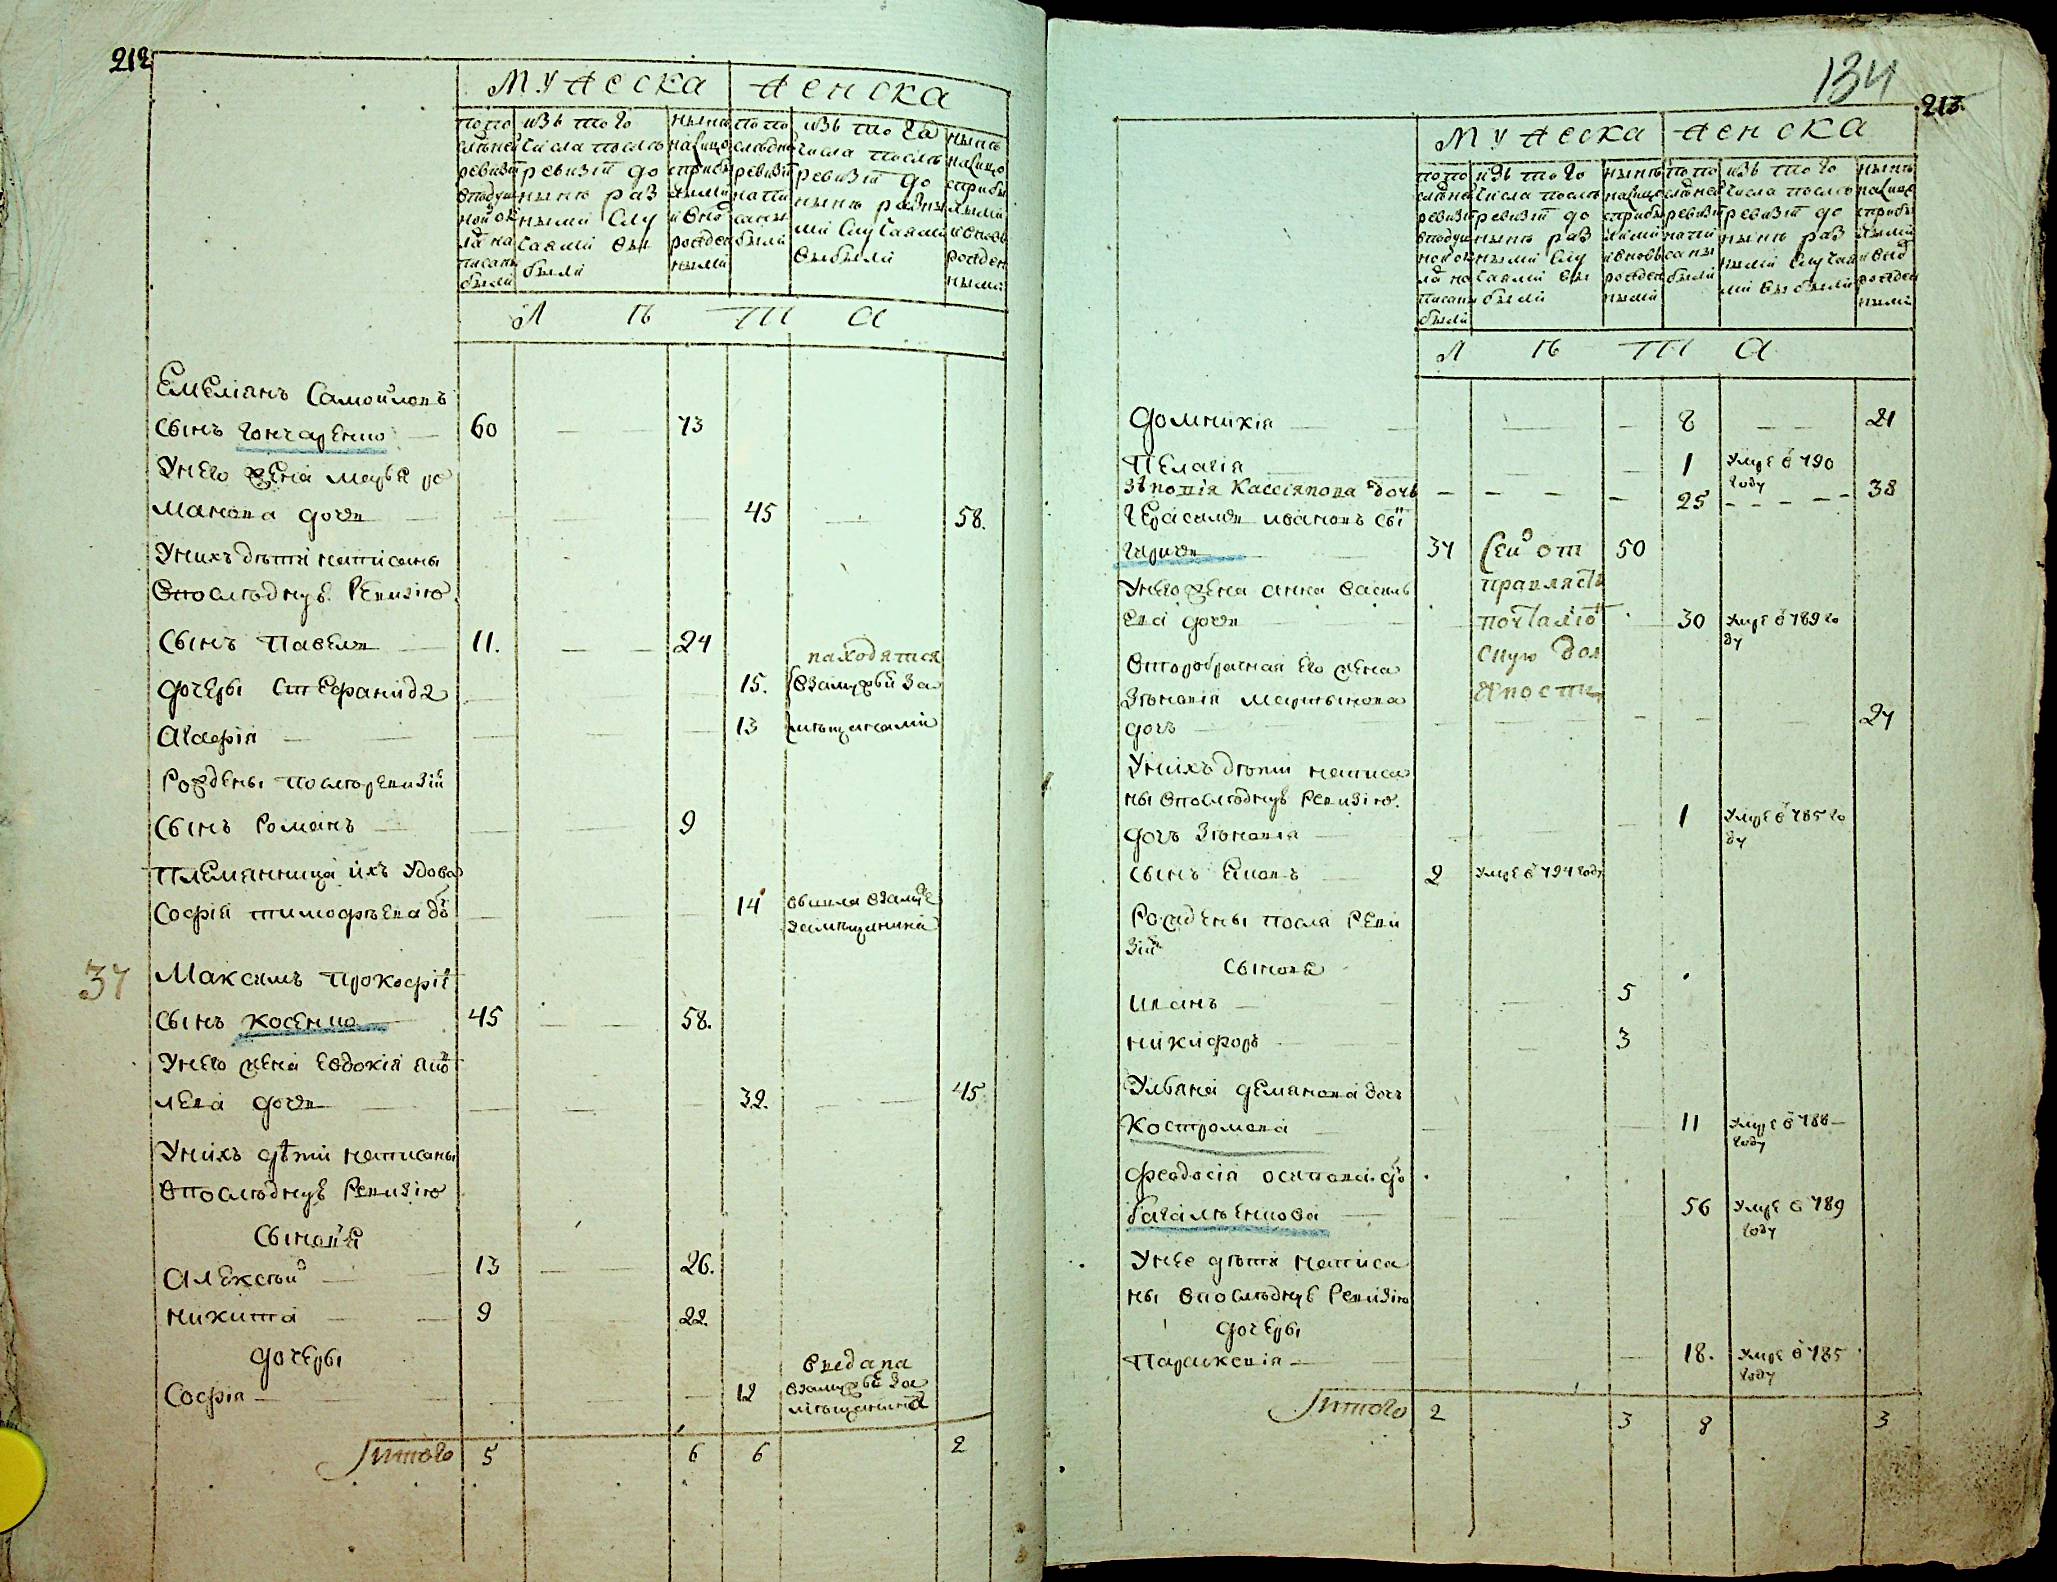 212
МУЖЕСКА ЖЕНСКА
по по следней ревизии в подушной оклад написаны были
изъ того числа после ревизии до ныне разными случаями выбыли
ныне на лицо с прибылыми и вновь рожденными
по по следней ревизии написаны были
изъ того числа после ревизии до ныне разными случаями выбыли
ныне на лицо с прибылыми и вновь рожденными
Л Ѣ Т А
Емелианъ Самойловъ
сынъ Гончаренко 60 — — 73
Унего жена Марья Ро
манова дочь — — — 45 — 58.
Унихъ дѣти написаны
впослѣднуъ Ревизію
Сынъ Павелъ — 11. — — 24
находятся
дочеры Стефанида — — 15. взамужьи за
Агафія — — — 13 мѣщанами
Рождены послѣревизій
Сынъ Романъ — — — 9
Племянница ихъ удова
Софія тимофѣева до — — 14 вышла взамуже
замѣщанина
37 Максимъ Прокофіевъ
сынъ Косенко 45 — — 58.
Унего жена Евдокія
лева дочь — — — 32. — — 45
Унихъ дѣти написаны
впослѣднуъ Ревизію
Сыновя
Алексѣй — 13 — — 26.
никита — — 9 22.
дочеры
выдана
Софія — — 12 взамужье за
мѣщанина
Итого 5 6 6 2
134
213.
МУЖЕСКА ЖЕНСКА
по по следней ревизии в подушной оклад написаны были
изъ того числа после ревизии до ныне разными случаями выбыли
ныне на лицо с прибылыми и вновь рожденными
по по следней ревизии написаны были
изъ того числа после ревизии до ныне разными случаями выбыли
ныне на лицо с прибылыми и вновь рожденными
Л Ѣ Т А
Домникія — — — — 8 — — 21
Пелагія — — 1 умре в 790
году
Зѣновія Кассіянова дочь — — — — 25 — — — — 38
Герасимъ Ивановъ сы
34 Сей от 50
правляетъ
Унего жена анна василь
ева дочь — почталіо — 30 умре в 789 го
ду
скую дол
Второбрачная его жена
жность
Зѣновія Мартынова
дочъ — — — — 27
Унихъ дѣти написа
ны впослѣднуъ Ревизію.
дочъ Зѣновія — — — 1 умре в 785 го
ду
сынъ Яковъ — 2 умре в 794 году
Рождены посля Реви
зій
Сыновя
Иванъ — — — 5
никифоръ — — — 3
Ульяна демянова дочъ
Костромева — — — 11 умре в 788
году
Феодосія осипова до
56 умре в 789
году
Унее дѣти написа
ны впослѣднуъ Ревизію
дочеры
Параскевія — — 18. умре в 785
году
Итого 2 3 8 3